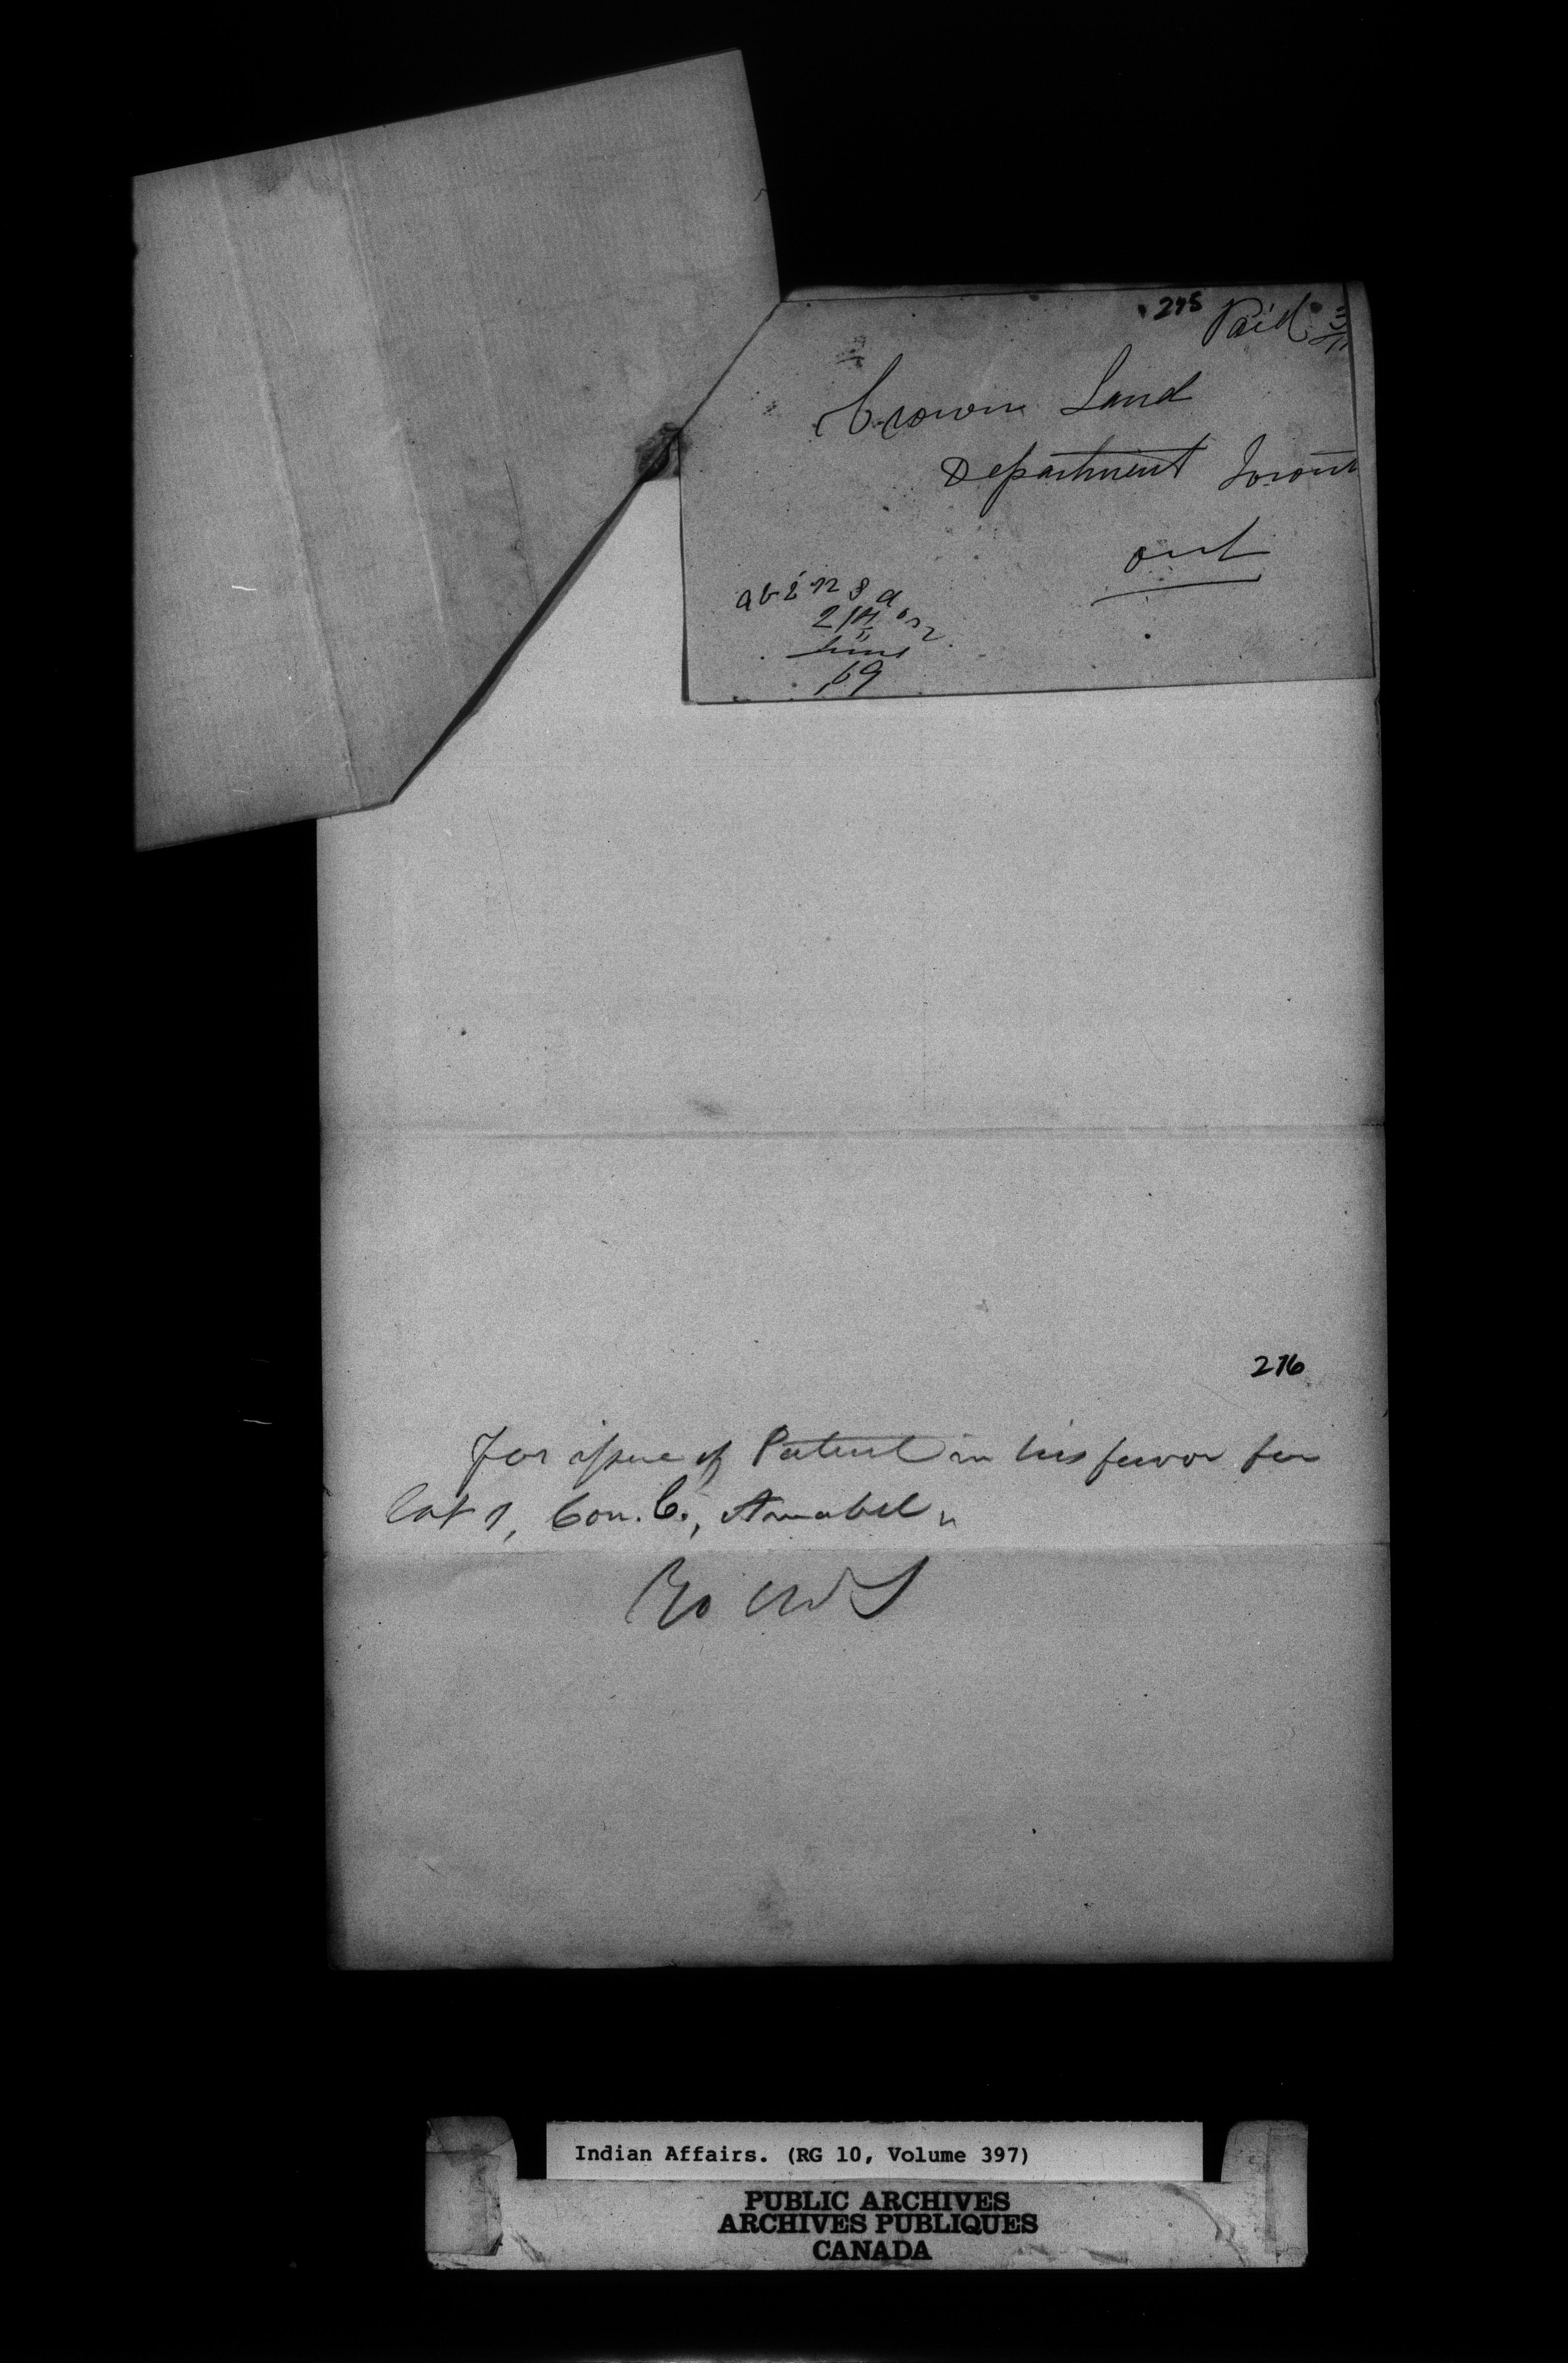 275
Paid 3
Crown Land
Department Toront
ont
21st
June
69
276
For issue of Patent in his favor for
lot 1, Con. C., Amabel "
Indian Affairs. (RG 10, Volume 397)
PUBLIC ARCHIVES
ARCHIVES PUBLIQUES
CANADA